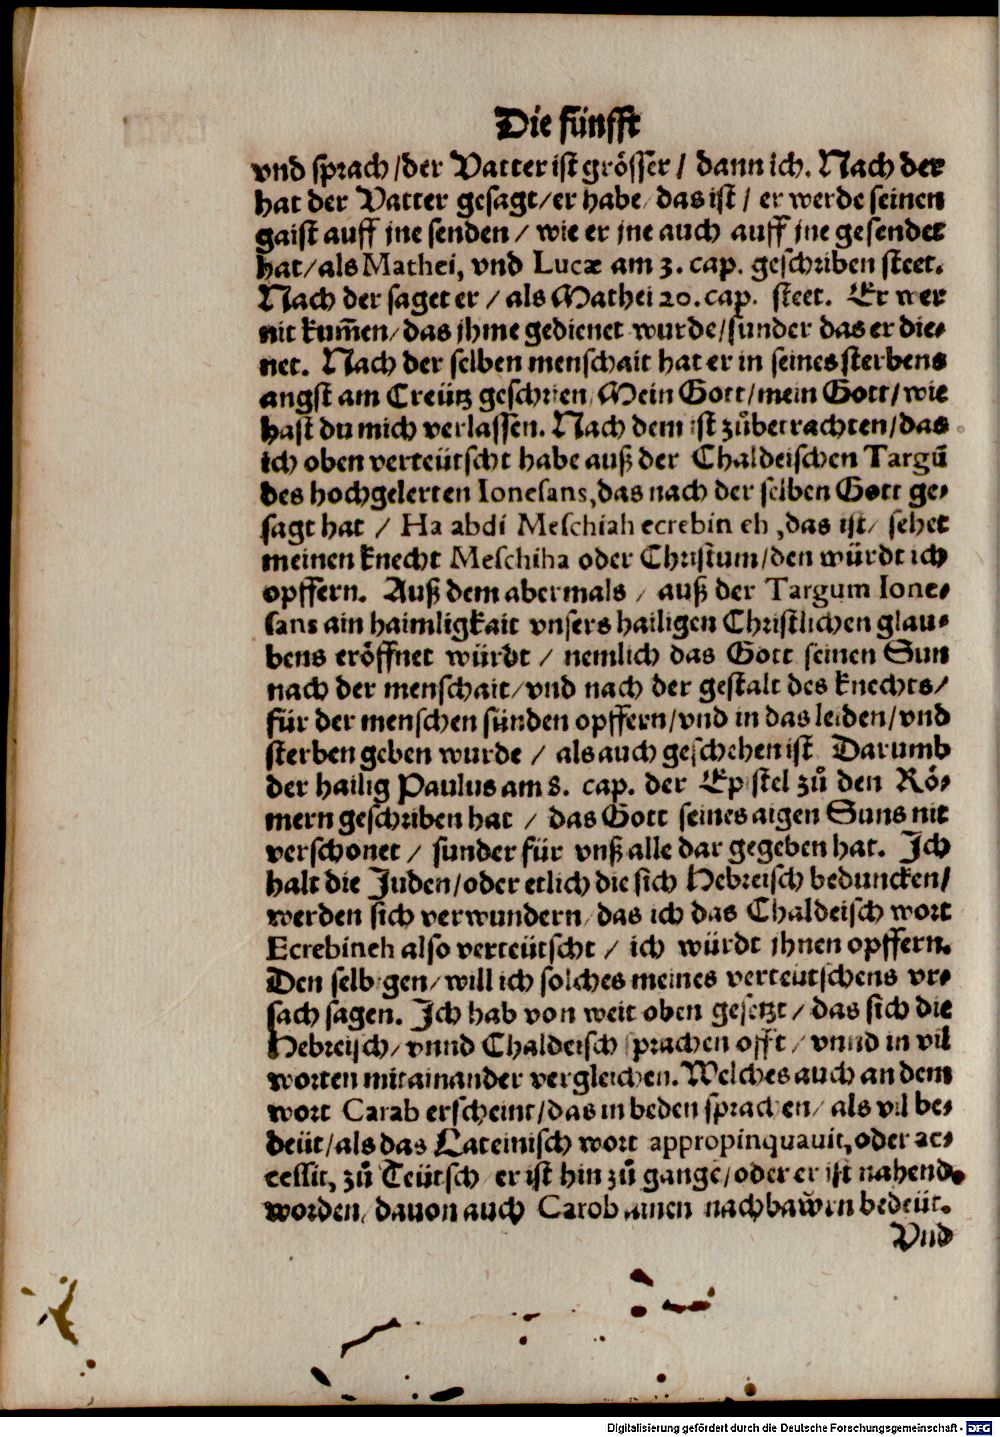 Die fünfft
vnd sprach / der Vatter ist grösser / dann ich. Nach der
hat der Vatter gesagt / er habe / das ist / er werde seinen
gaist auff jne senden / wie er jne auch auff jne gesendet
hat / als Mathei, vnd Lucæ am 3. cap. geschriben steet.
Nach der saget er / als Mathei 20. cap. steet. Er wer
nit kum̃en / das jhme gedienet wurde / sunder das er die⸗
net. Nach der selben menschait hat er in seines sterbens
angst am Creütz geschrien / Mein Gott / mein Gott / wie
hast du mich verlassen. Nach dem ist zůbetrachten / das
ich oben verteütscht habe auß der Chaldeischen Targũ
des hochgelerten Ionesans, das nach der selben Gott ge⸗
sagt hat / Ha abdi Meschiah ecrebin eh, das ist / sehet
meinen knecht Meschiha oder Christum / den würdt ich
opffern. Auß dem abermals / auß der Targum Ione⸗
sans ain haimligkait vnsers hailigen Christlichen glau⸗
bens eröffnet würdt / nemlich das Gott seinen Sun
nach der menschait / vnd nach der gestalt des knechts /
für der menschen sünden opffern / vnd in das leiden / vnd
sterben geben wurde / als auch geschehen ist Darumb
der hailig Paulus am 8. cap. der Epistel zů den Rö⸗
mern geschriben hat / das Gott seines aigen Suns nit
verschonet / sunder für vnß alle dar gegeben hat. Ich
halt die Juden / oder etlich die sich Hebreisch beduncken /
werden sich verwundern / das ich das Chaldeisch wort
Ecrebineh also verteütscht / ich würdt ihnen opffern.
Den selbigen / will ich solches meines verteutschens vr⸗
sach sagen. Ich hab von weit oben gesetzt / das sich die
Hebreisch / vnnd Chaldeisch sprachen offt / vnnd in vil
worten mitainander vergleichen. Welches auch an dem
wort Carab erscheint / das in beden sprachen / als vil be⸗
deüt / als das Lateinisch wort appropinquauit, oder ac⸗
cessit, zů Teütsch er ist hin zů gange / oder er ist nahend
worden / dauon auch Carob ainen nachbawrn bedeüt.
Vnd
Digitalisierung gefördert durch die Deutsche Forschungsgemeinschaft - DFG